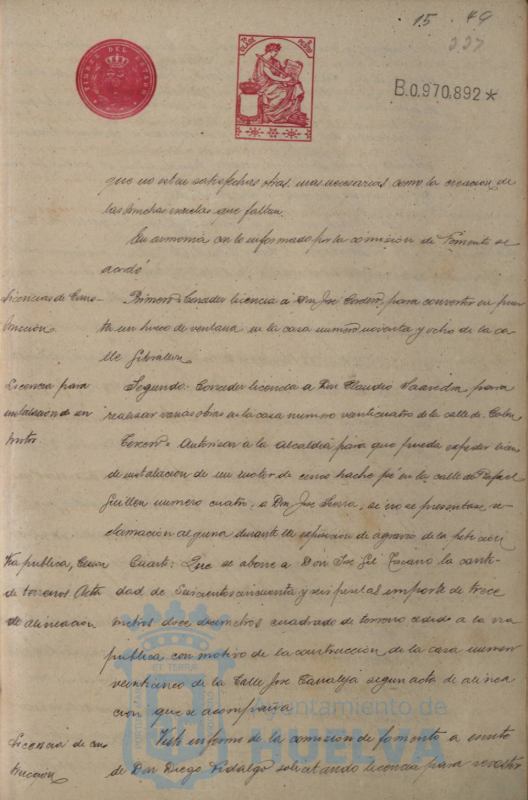 15 49
227
TIMBRE DEL ESTADO
B.0,970,892*
que no esten satisfechas otras mas necesarias como la creacion de
las muchas escuelas que faltan.
En armonia con lo informado por la comisión de Fomento se
acordó
Licencias de Cons-
trucción.
Primero: Conceder licencia á Don José Cordero, para convertir en puer
ta un hueco de ventana en la casa numero noventa y ocho de la ca
lle Gibraleon
Licencia para
instalacion de un
motor
Segundo: Conceder licencia a Don Claudio Saavedra para
realizar varias obras en la casa numero veinticuatro de la calle de
Tercero: Autorizar a la alcaldia para que pueda expedir licen
de instalacion de un motor de cinco hache pé en la calle de Rafael
Guillen numero cuatro, a Don José, si no se presentase re
clamación alguna durante la exposicion de agravio de la peticion
Via publica, Cesion
de terrenos Acta
de alineacion.
Cuarto: Que se abone a Don José Gil la canti-
dad de Seiscientos cincuenta y seis pesetas importe de trece
metros doce decimetros cuadrado de terreno cedido a la via
publica con motivo de la construcción de la casa numero
veinticinco de la Calle José Canalejas segun acta de alinea
cion que se acompaña
Licencia de cons
trucción
Visto informe de la comision de fomento a escrito
de Don Diego Hidalgo solicitando licencia para revestir
Ayuntamiento de
HUELVA